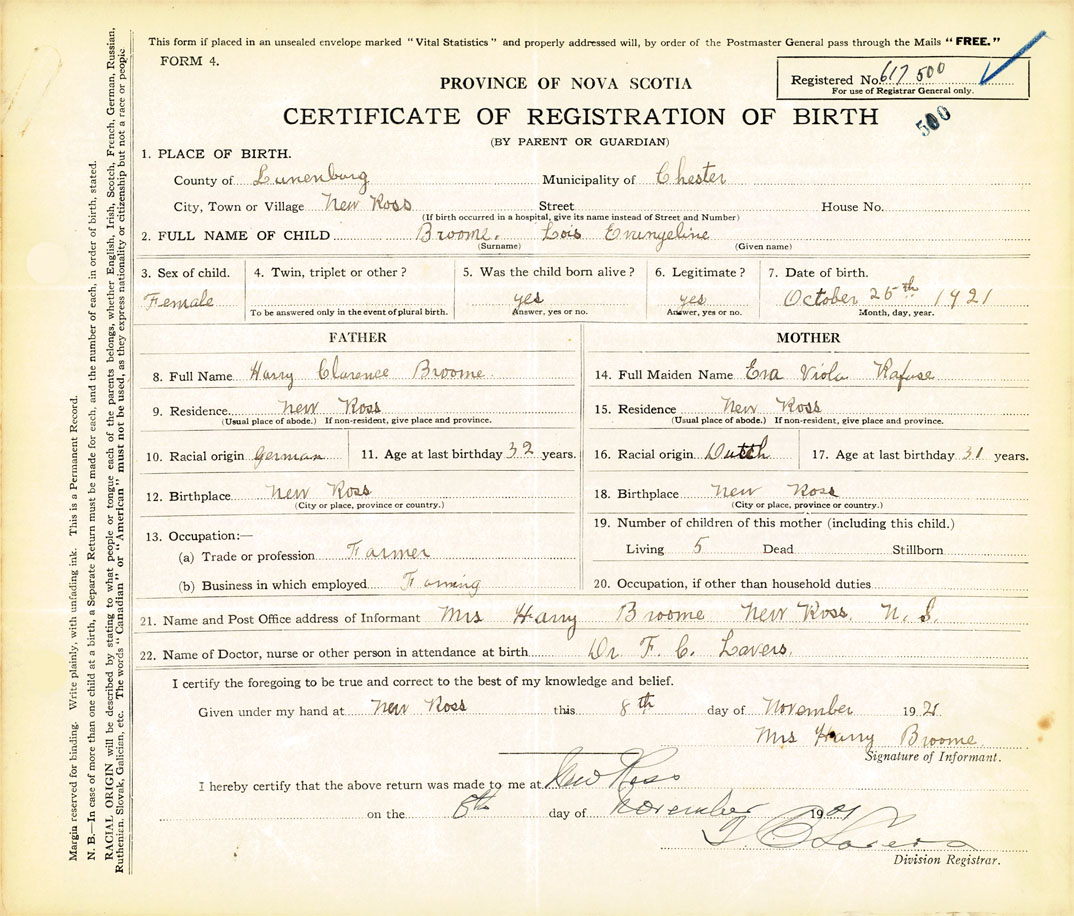 This form if placed in an unsealed envelope marked "Vital Statistics" and properly addressed will, by order of the Postmaster General pass through the Mails "FREE."
FORM 4.
Registered No. 617 500
For use of Registrar General only.
500
PROVINCE OF NOVA SCOTIA
CERTIFICATE OF REGISTRATION OF BIRTH
(BY PARENT OR GUARDIAN)
1. PLACE OF BIRTH.
County of Lunenburg Municipality of Chester
City, Town or Village New Ross Street House No.
(If birth occurred in a hospital, give its name instead of Street and Number)
2. FULL NAME OF CHILD Broome, Lois Evengeline
(Surname) (Given name)
3. Sex of child. 4. Twin, triplet or other? 5. Was the child born alive? 6. Legitimate? 7. Date of birth.
Female yes yes October 25th 1921
To be answered only in the event of plural birth. Answer, yes or no. Answer, yes or no. Month, day, year.
FATHER MOTHER
8. Full Name Harry Clarence Broome 14. Full Maiden Name Eva Viola Rafuse
9. Residence New Ross 15. Residence New Ross
(Usual place of abode.) If non-resident, give place and province. (Usual place of abode.) If non-resident, give place and province.
10. Racial origin German 11. Age at last birthday 32 years. 16. Racial origin Dutch 17. Age at last birthday 31 years.
12. Birthplace New Ross 18. Birthplace New Ross
(City or place, province or country.) (City or place, province or country.)
13. Occupation:— 19. Number of children of this mother (including this child.)
(a) Trade or profession Farmer Living 5 Dead Stillborn
(b) Business in which employed Farming 20. Occupation, if other than household duties
21. Name and Post Office address of Informant Mrs Harry Broome New Ross, N. S.
22. Name of Doctor, nurse or other person in attendance at birth Dr. F. C. Lavers.
I certify the foregoing to be true and correct to the best of my knowledge and belief.
Given under my hand at New Ross this 8th day of November 1921
Mrs Harry Broome
Signature of Informant.
I hereby certify that the above return was made to me at New Ross
on the 8th day of November 1921
Lavers
Division Registrar.
Margin reserved for binding. Write plainly, with unfading ink. This is a Permanent Record.
N. B.—In case of more than one child at a birth, a Separate Return must be made for each, and the number of each, in order of birth, stated.
RACIAL ORIGIN will be described by stating to what people or tongue each of the parents belongs, whether English, Irish, Scotch, French, German, Russian,
Ruthenian, Slovak, Galician, etc. The words "Canadian" or "American" must not be used, as they express nationality or citizenship but not a race or people